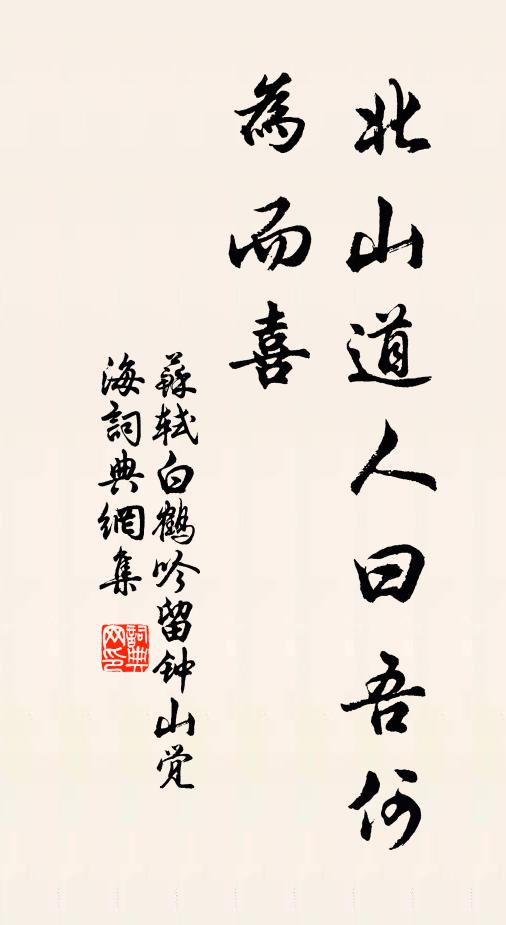 北山道人曰吾何
為而喜
蘇軾白鶴吟留钟山觉
海詞典網集
詞典
网印